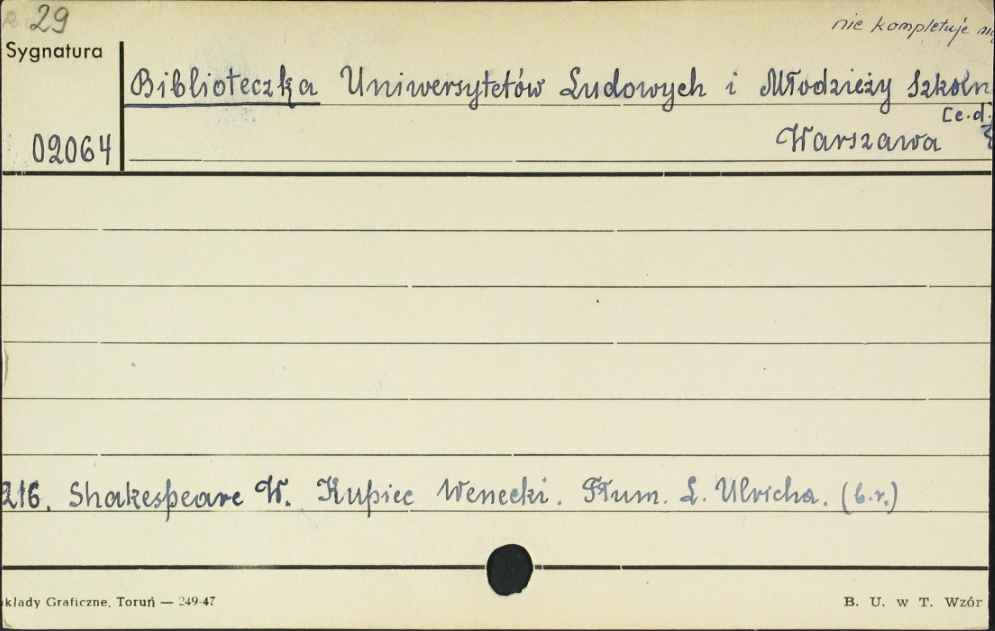 29
nie kompletuje
Sygnatura
Biblioteczka Uniwersytetów Ludowych i Młodzieży Szkoln
[c.d.
02064 Warszawa
216. Shakespeare W. Kupiec Wenecki. Tłum. L. Ulricha. (b.r.)
kłady Graficzne, Toruń — 249-47 B. U. w T. Wzór